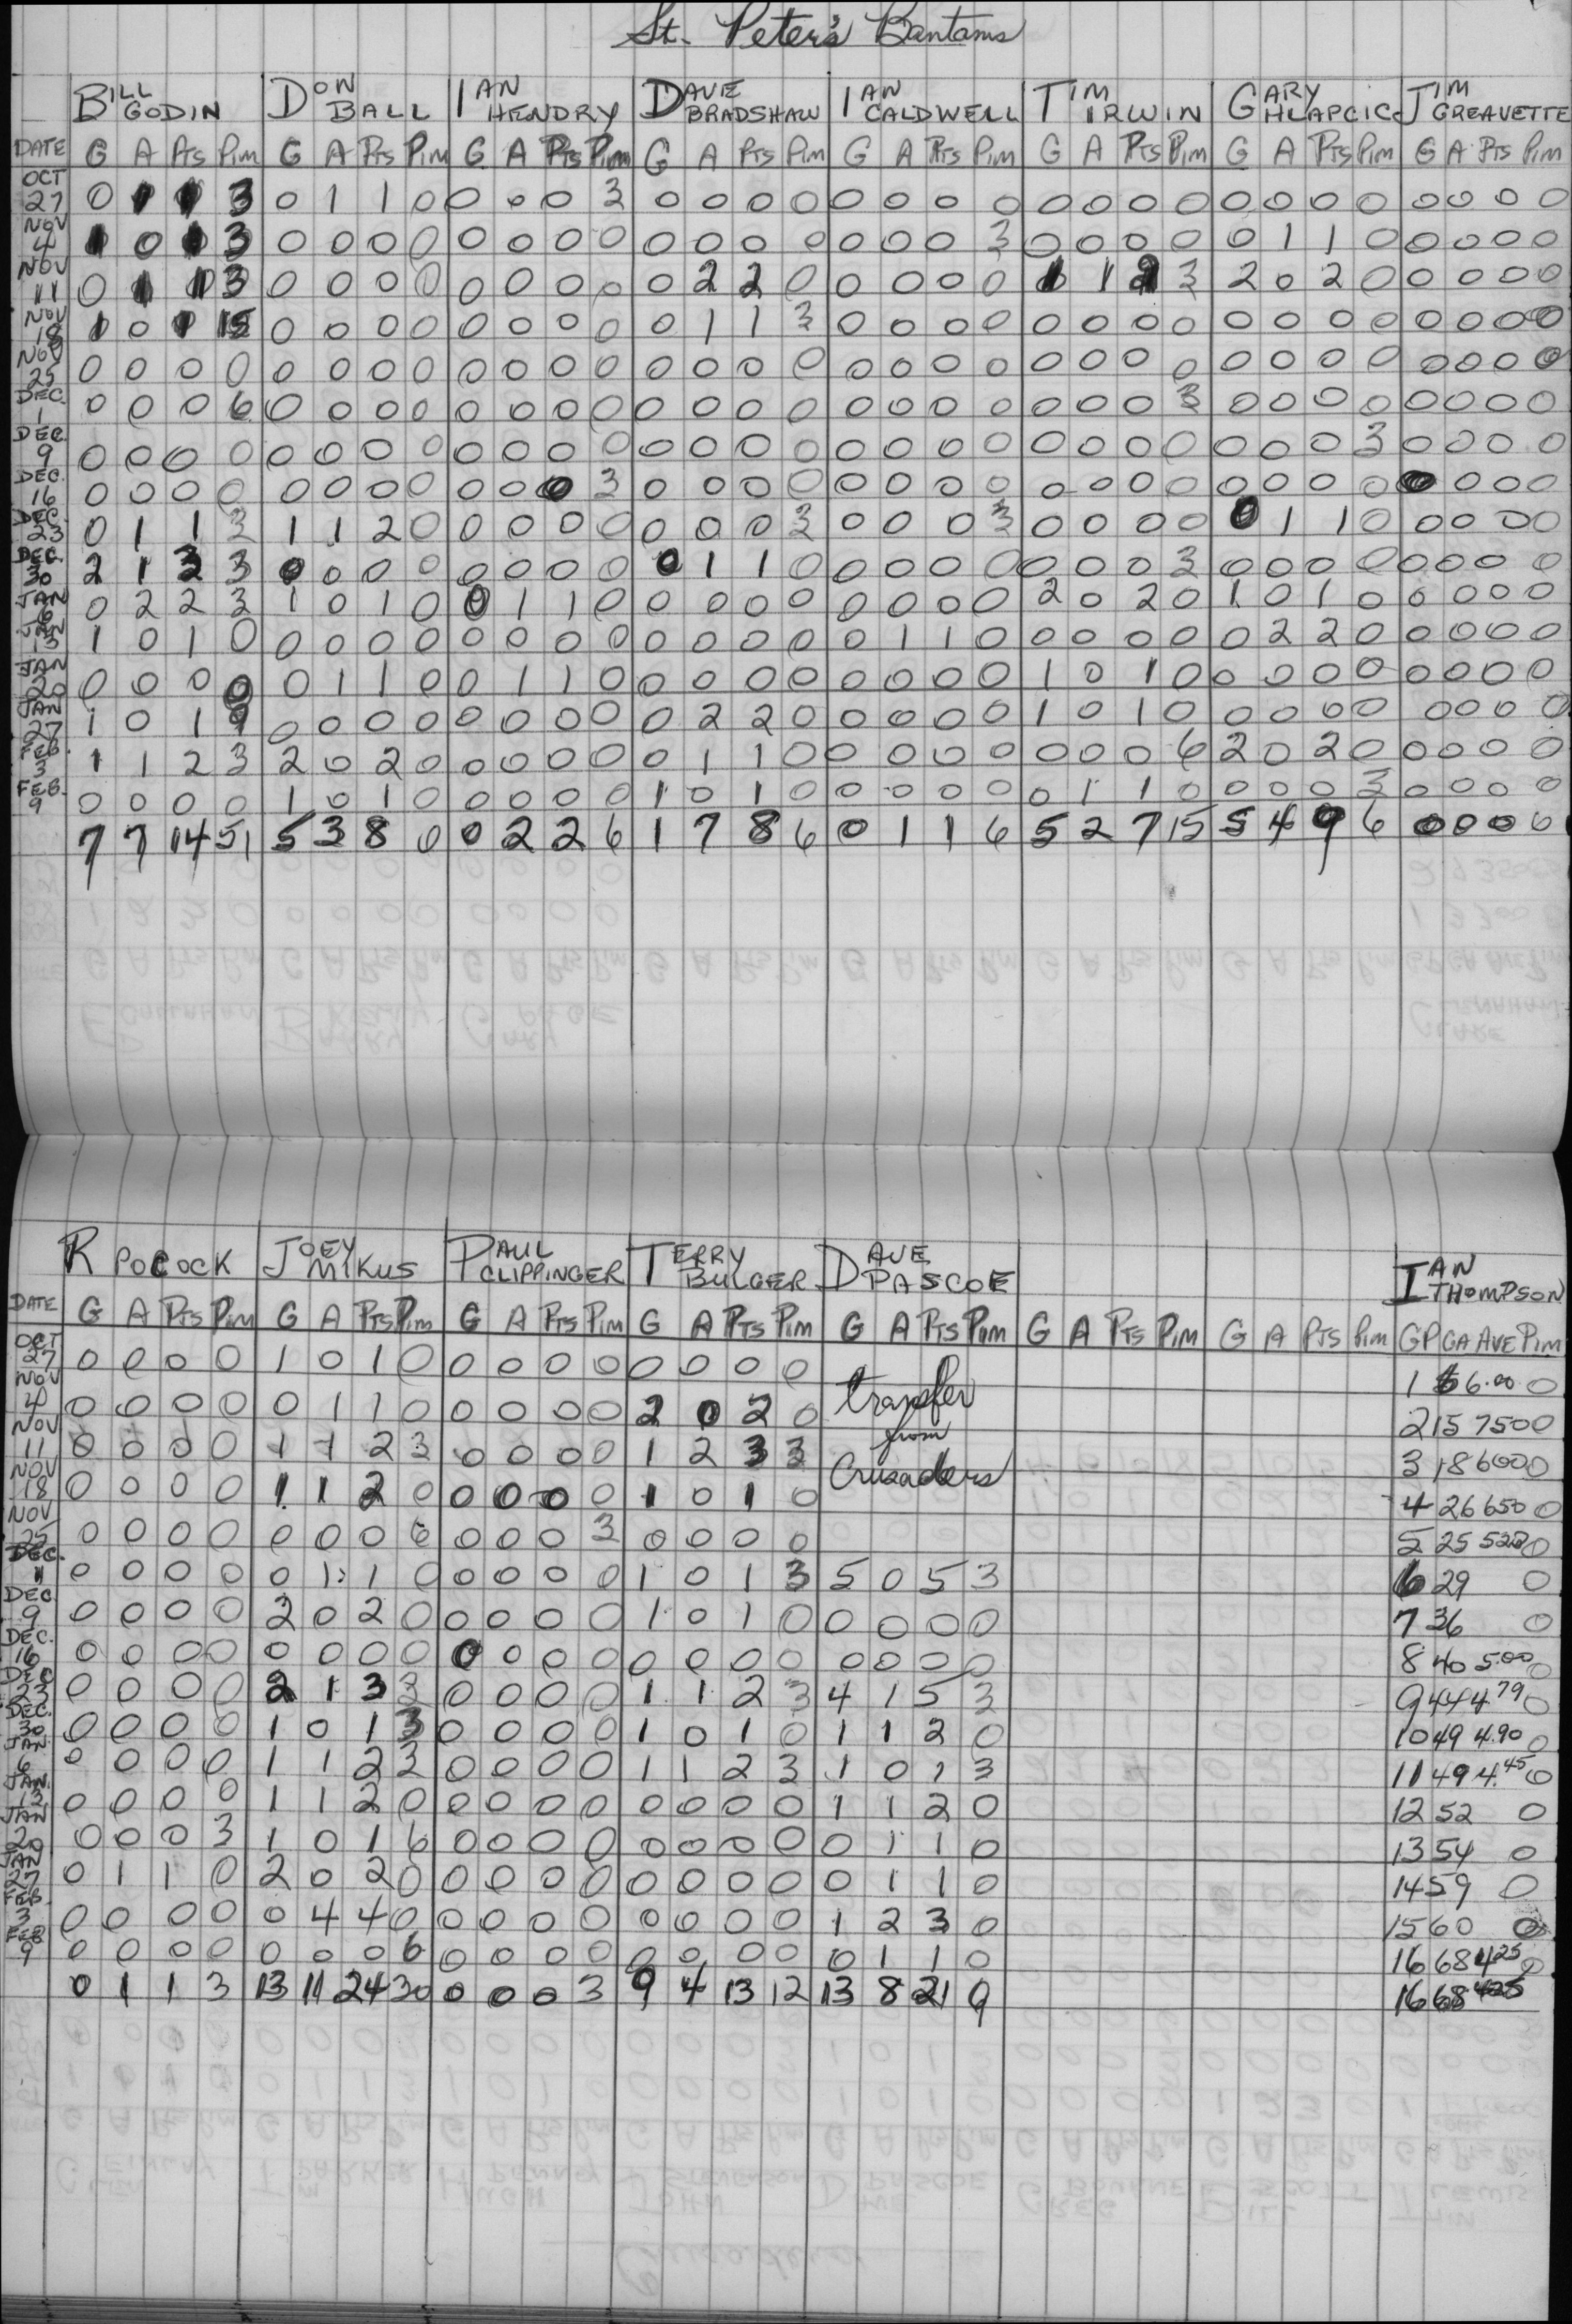 St. Peter's Bantams
BILL GODIN DON BALL IAN HENDRY DAVE BRADSHAW IAN CALDWELL TIM IRWIN GARY HLAPCIC JIM GREAVETTE
DATE G A PTS PIM G A PTS PIM G A PTS PIM G A PTS PIM G A PTS PIM G A PTS PIM G A PTS PIM G A PTS PIM
OCT 27 0 1 1 3 0 1 1 0 0 0 0 3 0 0 0 0 0 0 0 0 0 0 0 0 0 0 0 0 0 0 0 0
NOV 4 1 0 1 3 0 0 0 0 0 0 0 0 0 0 0 0 0 0 0 3 0 0 0 0 0 1 1 0 0 0 0 0
NOV 11 0 1 1 3 0 0 0 0 0 0 0 0 0 2 2 0 0 0 0 0 1 1 2 3 2 0 2 0 0 0 0 0
NOV 18 1 0 1 15 0 0 0 0 0 0 0 0 0 1 1 3 0 0 0 0 0 0 0 0 0 0 0 0 0 0 0 0
NOV 25 0 0 0 0 0 0 0 0 0 0 0 0 0 0 0 0 0 0 0 0 0 0 0 0 0 0 0 0 0 0 0 0
DEC. 1 0 0 0 6 0 0 0 0 0 0 0 0 0 0 0 0 0 0 0 0 0 0 0 3 0 0 0 0 0 0 0 0
DEC. 9 0 0 0 0 0 0 0 0 0 0 0 0 0 0 0 0 0 0 0 0 0 0 0 0 0 0 0 3 0 0 0 0
DEC. 16 0 0 0 0 0 0 0 0 0 0 0 3 0 0 0 0 0 0 0 0 0 0 0 0 0 0 0 0 0 0 0 0
DEC. 23 0 1 1 3 1 1 2 0 0 0 0 0 0 0 0 3 0 0 0 3 0 0 0 0 0 1 1 0 0 0 0 0
DEC. 30 2 1 3 3 0 0 0 0 0 0 0 0 0 1 1 0 0 0 0 0 0 0 0 3 0 0 0 0 0 0 0 0
JAN 6 0 2 2 3 1 0 1 0 0 1 1 0 0 0 0 0 0 0 0 0 2 0 2 0 1 0 1 0 0 0 0 0
JAN 13 1 0 1 0 0 0 0 0 0 0 0 0 0 0 0 0 0 1 1 0 0 0 0 0 0 2 2 0 0 0 0 0
JAN 20 0 0 0 0 0 1 1 0 0 1 1 0 0 0 0 0 0 0 0 0 1 0 1 0 0 0 0 0 0 0 0 0
JAN 27 1 0 1 9 0 0 0 0 0 0 0 0 0 2 2 0 0 0 0 0 1 0 1 0 0 0 0 0 0 0 0 0
FEB 3 1 1 2 3 2 0 2 0 0 0 0 0 0 1 1 0 0 0 0 0 0 0 0 6 2 0 2 0 0 0 0 0
FEB. 9 0 0 0 0 1 0 1 0 0 0 0 0 1 0 1 0 0 0 0 0 0 1 1 0 0 0 0 3 0 0 0 0
7 7 14 51 5 3 8 0 0 2 2 6 1 7 8 6 0 1 1 6 5 2 7 15 5 4 9 6 0 0 0 0
R POCOCK JOEY MIKUS PAUL CLIPPINGER TERRY BULGER DAVE PASCOE IAN THOMPSON
DATE G A PTS PIM G A PTS PIM G A PTS PIM G A PTS PIM G A PTS PIM G A PTS PIM G A PTS PIM GP GA AVE PIM
OCT 27 0 0 0 0 1 0 1 0 0 0 0 0 0 0 0 0 1 6 6.00 0
NOV 4 0 0 0 0 0 1 1 0 0 0 0 0 2 0 2 0 transfer 2 15 750 0
NOV 11 0 0 0 0 1 1 2 3 0 0 0 0 1 2 3 3 from 3 18 600 0
NOV 18 0 0 0 0 1 1 2 0 0 0 0 0 1 0 1 0 Crusaders 4 26 650 0
NOV 25 0 0 0 0 0 0 0 6 0 0 0 3 0 0 0 0 5 25 0
DEC. 1 0 0 0 0 0 1 1 0 0 0 0 0 1 0 1 3 5 0 5 3 6 29 0
DEC 9 0 0 0 0 2 0 2 0 0 0 0 0 1 0 1 0 0 0 0 0 7 36 0
DEC. 16 0 0 0 0 0 0 0 0 0 0 0 0 0 0 0 0 0 0 0 0 8 40 5.00 0
DEC 23 0 0 0 0 2 1 3 3 0 0 0 0 1 1 2 3 4 1 5 3 9 44 4.79 0
DEC. 30 0 0 0 0 1 0 1 3 0 0 0 0 1 0 1 0 1 1 2 0 10 49 4.90 0
JAN 6 0 0 0 0 1 1 2 3 0 0 0 0 1 1 2 3 1 0 1 3 11 49 4.45 0
JAN. 13 0 0 0 0 1 1 2 0 0 0 0 0 0 0 0 0 1 1 2 0 12 52 0
JAN 20 0 0 0 3 1 0 1 6 0 0 0 0 0 0 0 0 0 1 1 0 13 54 0
JAN 27 0 1 1 0 2 0 2 0 0 0 0 0 0 0 0 0 0 1 1 0 14 59 0
FEB. 3 0 0 0 0 0 4 4 0 0 0 0 0 0 0 0 0 1 2 3 0 15 60 0
FEB 9 0 0 0 0 0 0 0 6 0 0 0 0 0 0 0 0 0 1 1 0 16 68 4.25 0
0 1 1 3 13 11 24 30 0 0 0 3 9 4 13 12 13 8 21 9 16 68 4.25